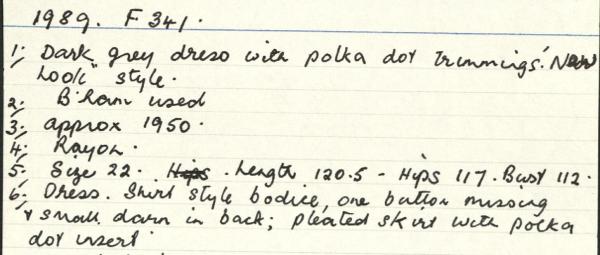 1989. F 341.
1; Dark grey dress with polka dot trimmings. "New
Look" style.
2. B'ham used
3; approx 1950.
4; Rayon.
5; Size 22. Hips . Length 120.5 - Hips 117. Bust 112.
6; Dress. Shirt style bodice, one button missing
& small darn in back; pleated skirt with polka
dot insert